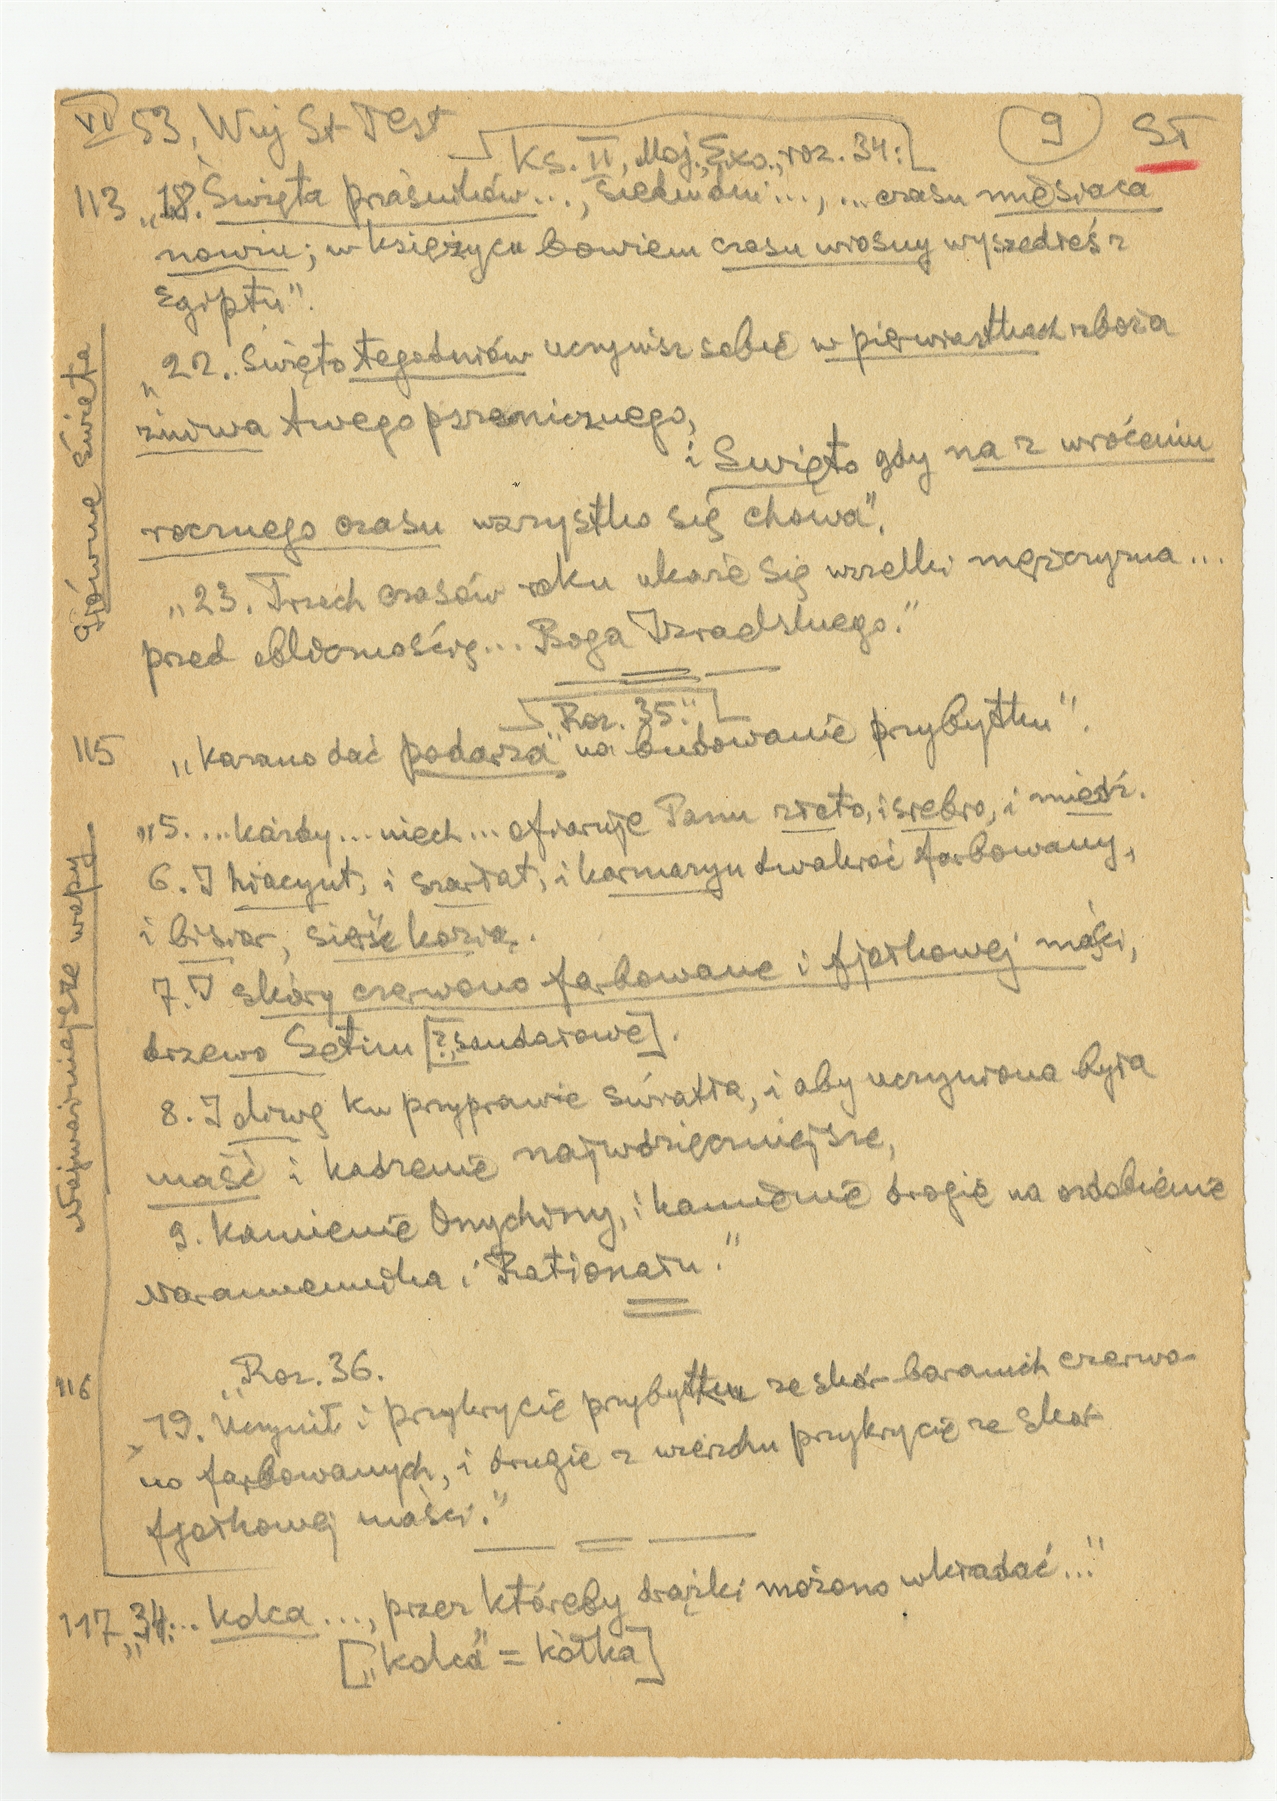 VI 53, Wuj St Test
Ks. II, Moj., Exo., roz. 34:
9
ST
113 „18. Święta praśników..., siedm dni..., ... czasu miesiąca
nowiu; w księżycu bowiem czasu wiosny wyszedłeś z
Egiptu”.
„22. Święto tegodniów uczynisz sobie w pierwiastkach zboża
żniwa twego pszenicznego,
i Święto gdy na z wróceniu
rocznego czasu wszystko się chowa”.
„23. Trzech czasów roku ukaże się wszelki mężczyzna ...
przed oblicznością... Boga Izraelskiego.”
Główne święta
„Roz. 35.”
115 „Kazano dać podarza” na budowanie przybytku”.
„5. ... każdy ... niech ... ofiaruje Panu złoto, i srebro, i miedź.
6. I hiacynt, i szarłat, i karmazyn dwakroć farbowany,
i bisior, sierść kozią.
7. I skóry czerwono farbowane i fjołkowej maści,
drzewo Setim [?„sandałowe].
8. I oliwę ku przyprawie światła, i aby uczyniona była
maść i kadzenie najwdzięczniejsze,
9. Kamienie Onychiny, i kamienie drogie na ozdobienie
Naramiennika i Rationału.”
Najważniejsze wapy
116 „Roz. 36.
19. Uczynił i przykrycie przybytku ze skór baranich czerwo-
no farbowanych, i drugie z wierzchu przykrycie ze skór
fjołkowej maści.”
117 „34. ... kolca ..., przez któreby drążki możono wkładać...”
[„kolca” = kółka]